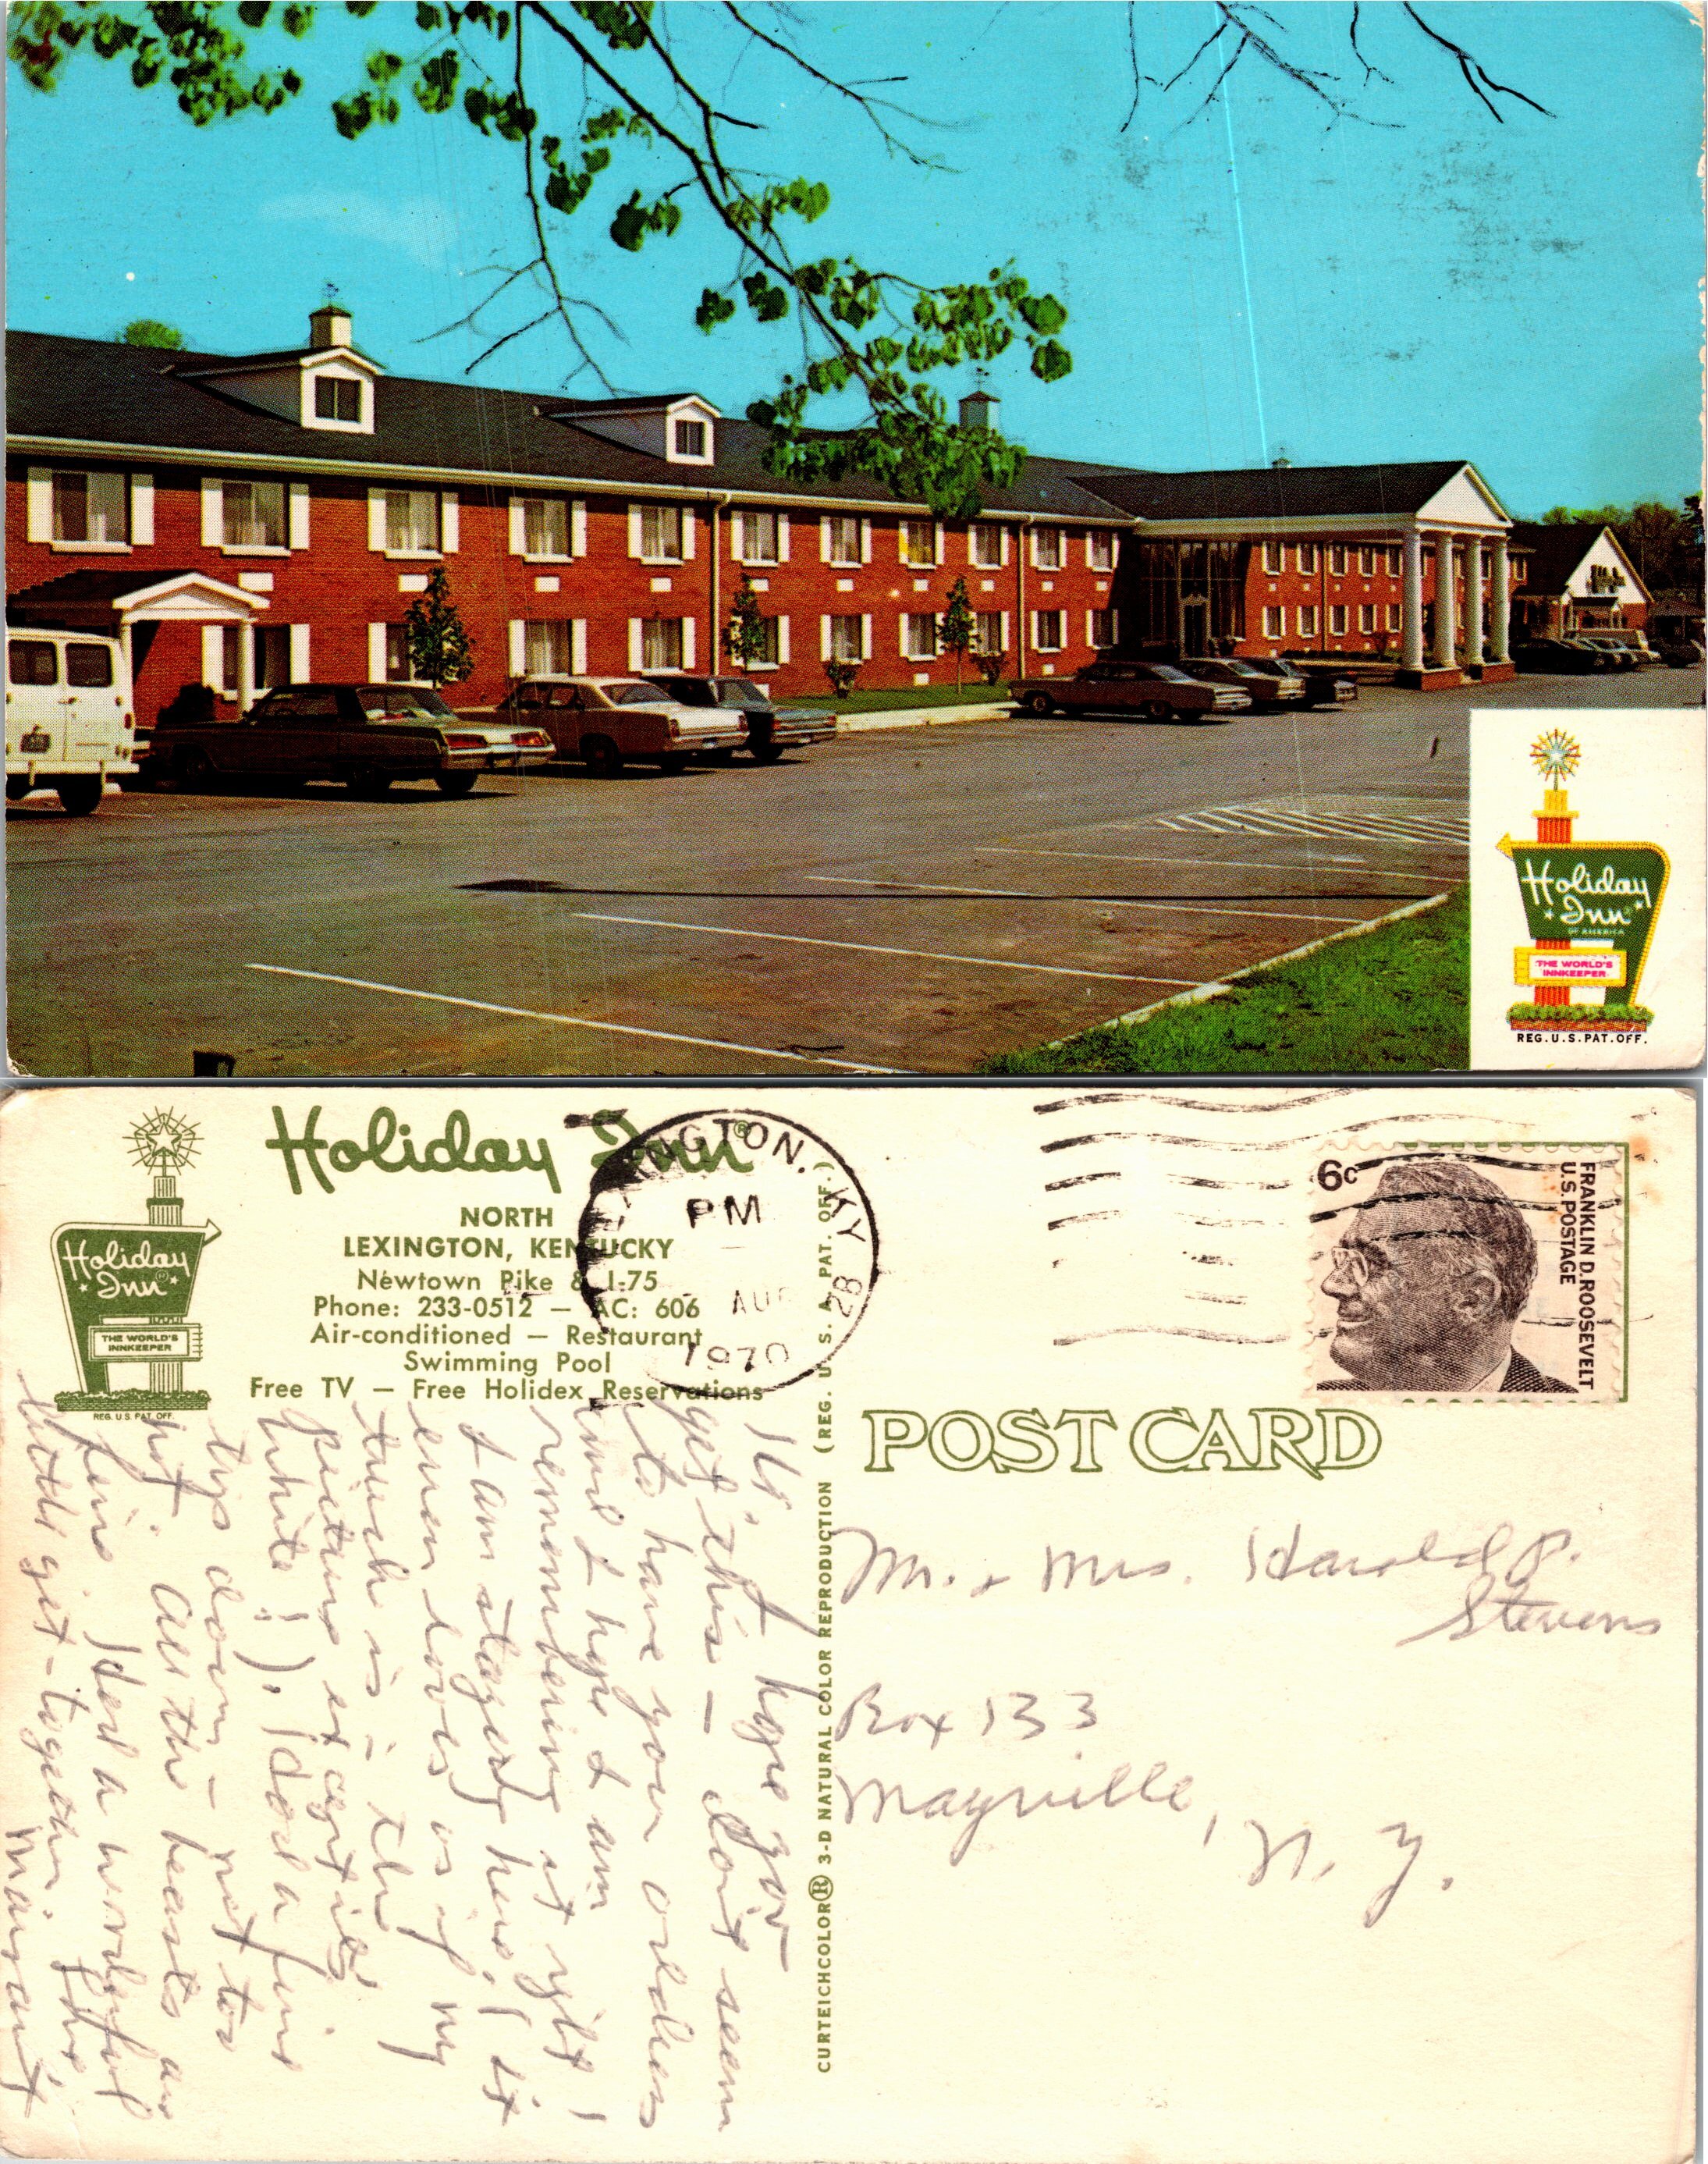 Holiday
Inn
OF AMERICA
THE WORLD'S
INNKEEPER
REG. U.S. PAT. OFF.
Holiday Inn®
NORTH
LEXINGTON, KENTUCKY
Newtown Pike & I-75
Phone: 233-0512 — AC: 606
Air-conditioned — Restaurant
Swimming Pool
Free TV — Free Holidex Reservations
Holiday
Inn®
THE WORLD'S
INNKEEPER
REG. U.S. PAT. OFF.
LEXINGTON, KY
PM
AUG
1970
28
6c
FRANKLIN D. ROOSEVELT
U.S. POSTAGE
POST CARD
CURTEICHCOLOR® 3-D NATURAL COLOR REPRODUCTION (REG. U. S. A. PAT. OFF.)
Hi, hope you
get this — don't seem
to have your address
and I hope I am
remembering it right!
I am staying here. (it
even looks as if my
truck is in the
picture except it's
white!). Had a fine
trip down — not too
hot. All the beasts are
fine. Had a wonderful
get-together
Mr. & Mrs. Harold P.
Stevens
Box 133
Mayville, N. Y.